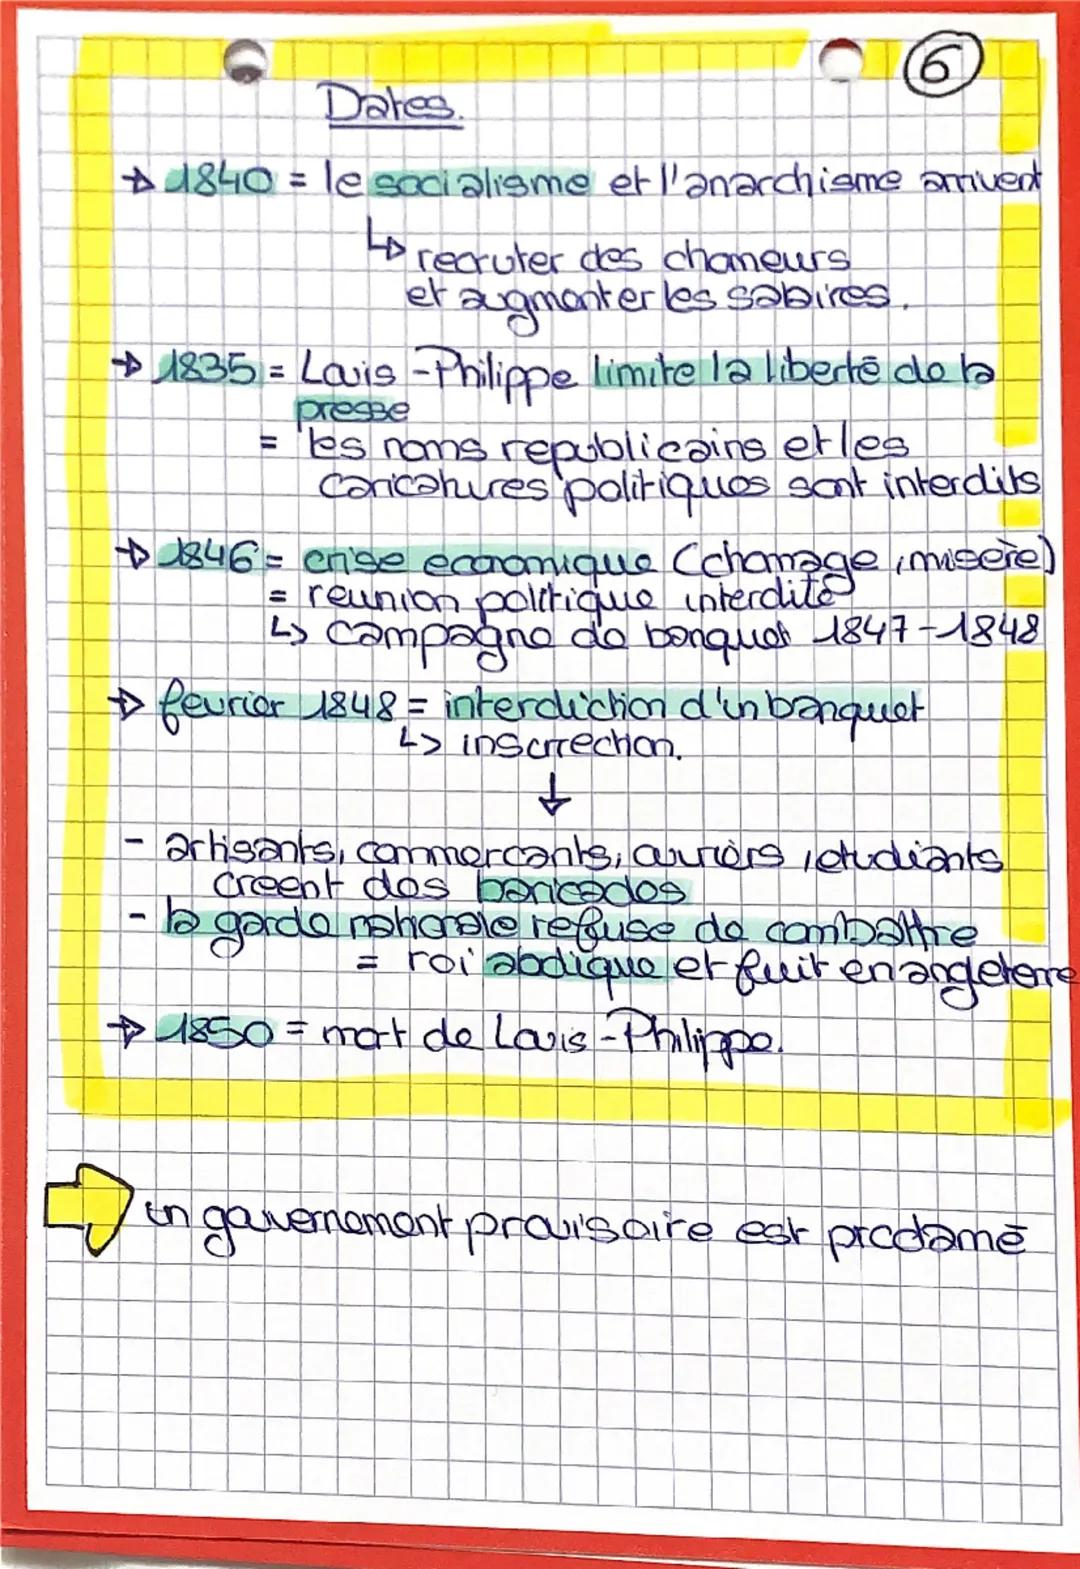 6
Dates.
→ 1840 = le socialisme et l'anarchisme arrivent
↳ recruter des chomeurs
et augmenter les salaires.
→ 1835 = Louis-Philippe limite la liberté de la
presse
= les noms republicains et les
caricatures politiques sont interdits
→ 1846 = crise economique (chomage, misère)
= reunion politique interdite
↳ campagne de banquet 1847-1848
→ fevrier 1848 = interdiction d'un banquet
↳ insurrection.
↓
- artisants, commercants, ouvriers, etudiants
creent des baricades
- la garde nationale refuse de combattre
= roi abdique et fuit en angleterre
→ 1850 = mort de Louis-Philippe.
un gouvernement provisoire est proclamé